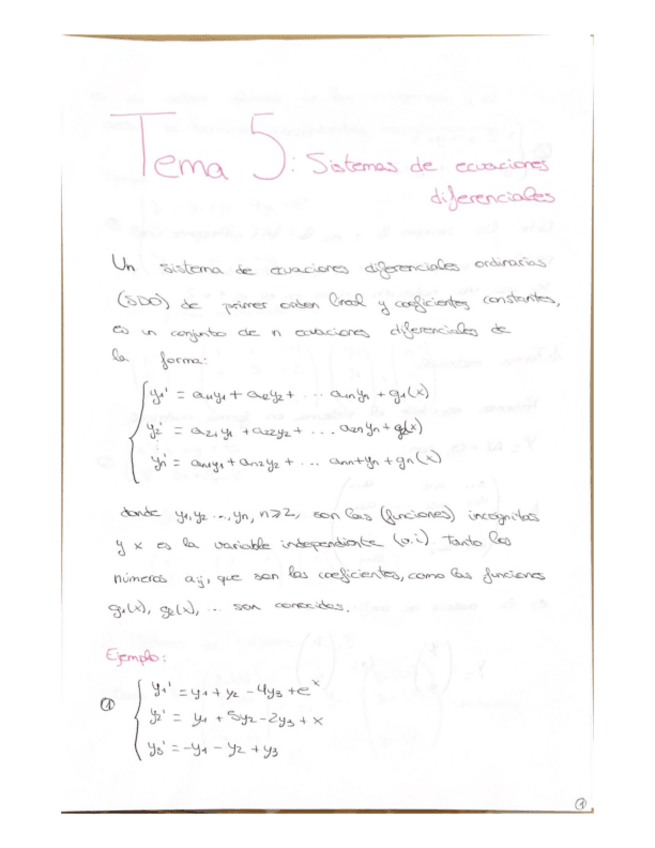 Tema 5: Sistemas de ecuaciones
diferenciales
Un sistema de ecuaciones diferenciales ordinarias
(SDO) de primer orden lineal y coeficientes constantes,
es un conjunto de n ecuaciones diferenciales de
la forma:
y₁' = a₁₁y₁ + a₁₂y₂ + ... a₁nyn + g₁(x)
y₂' = a₂₁y₁ + a₂₂y₂ + ... a₂nyn + g₂(x)
yn' = an₁y₁ + an₂y₂ + ... ann+yn + gn(x)
donde y₁, y₂ ..., yn, n≥2, son las (funciones) incógnitas
y x es la variable independiente (v.i). Tanto los
números aij, que son los coeficientes, como las funciones
g₁(x), g₂(x), ... son conocidas.
Ejemplo:
① y₁' = y₁ + y₂ - 4y₃ + eˣ
y₂' = y₁ + 5y₂ - 2y₃ + x
y₃' = -y₁ - y₂ + y₃
①